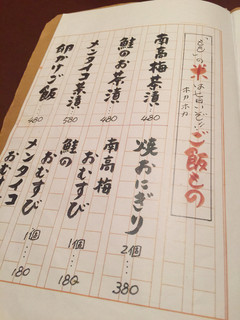 米
ご飯もの
ホカホカ
南高梅茶漬 480
鮭のお茶漬
メンタイコ茶漬 580
卵かけご飯 480
焼おにぎり 2個 380
南高梅おむすび
鮭のおむすび 1個 180
メンタイコおむす 1個 180